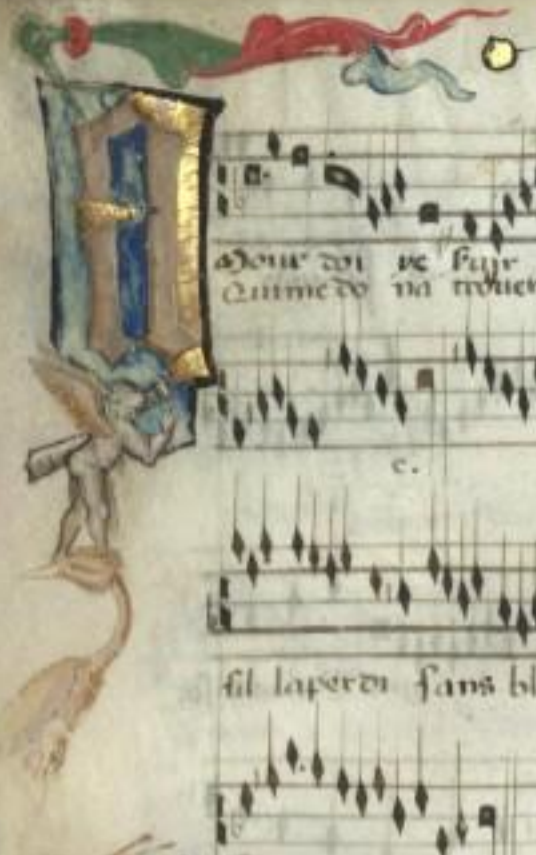 Mour doi ve fuir
Qui me do na trouer
c.
fil laperdi sans bl